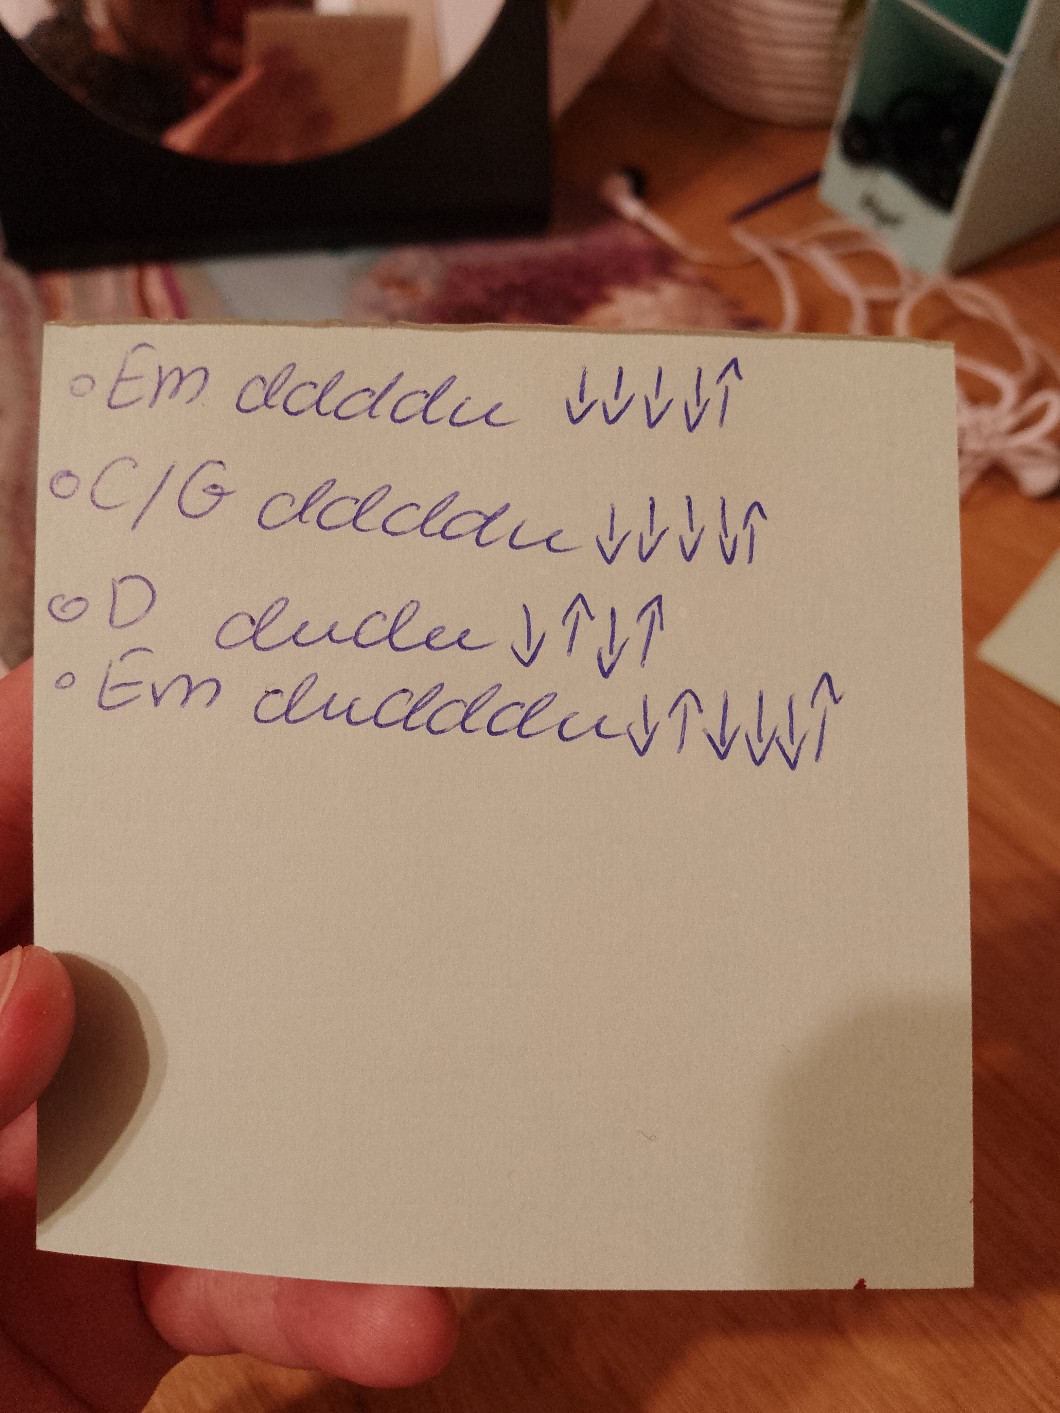 ◦ Em ddddu ↓↓↓↓↑
◦ C/G ddddu ↓↓↓↓↑
◦ D dudu ↓↑↓↑
◦ Em dudddu ↓↑↓↓↓↑